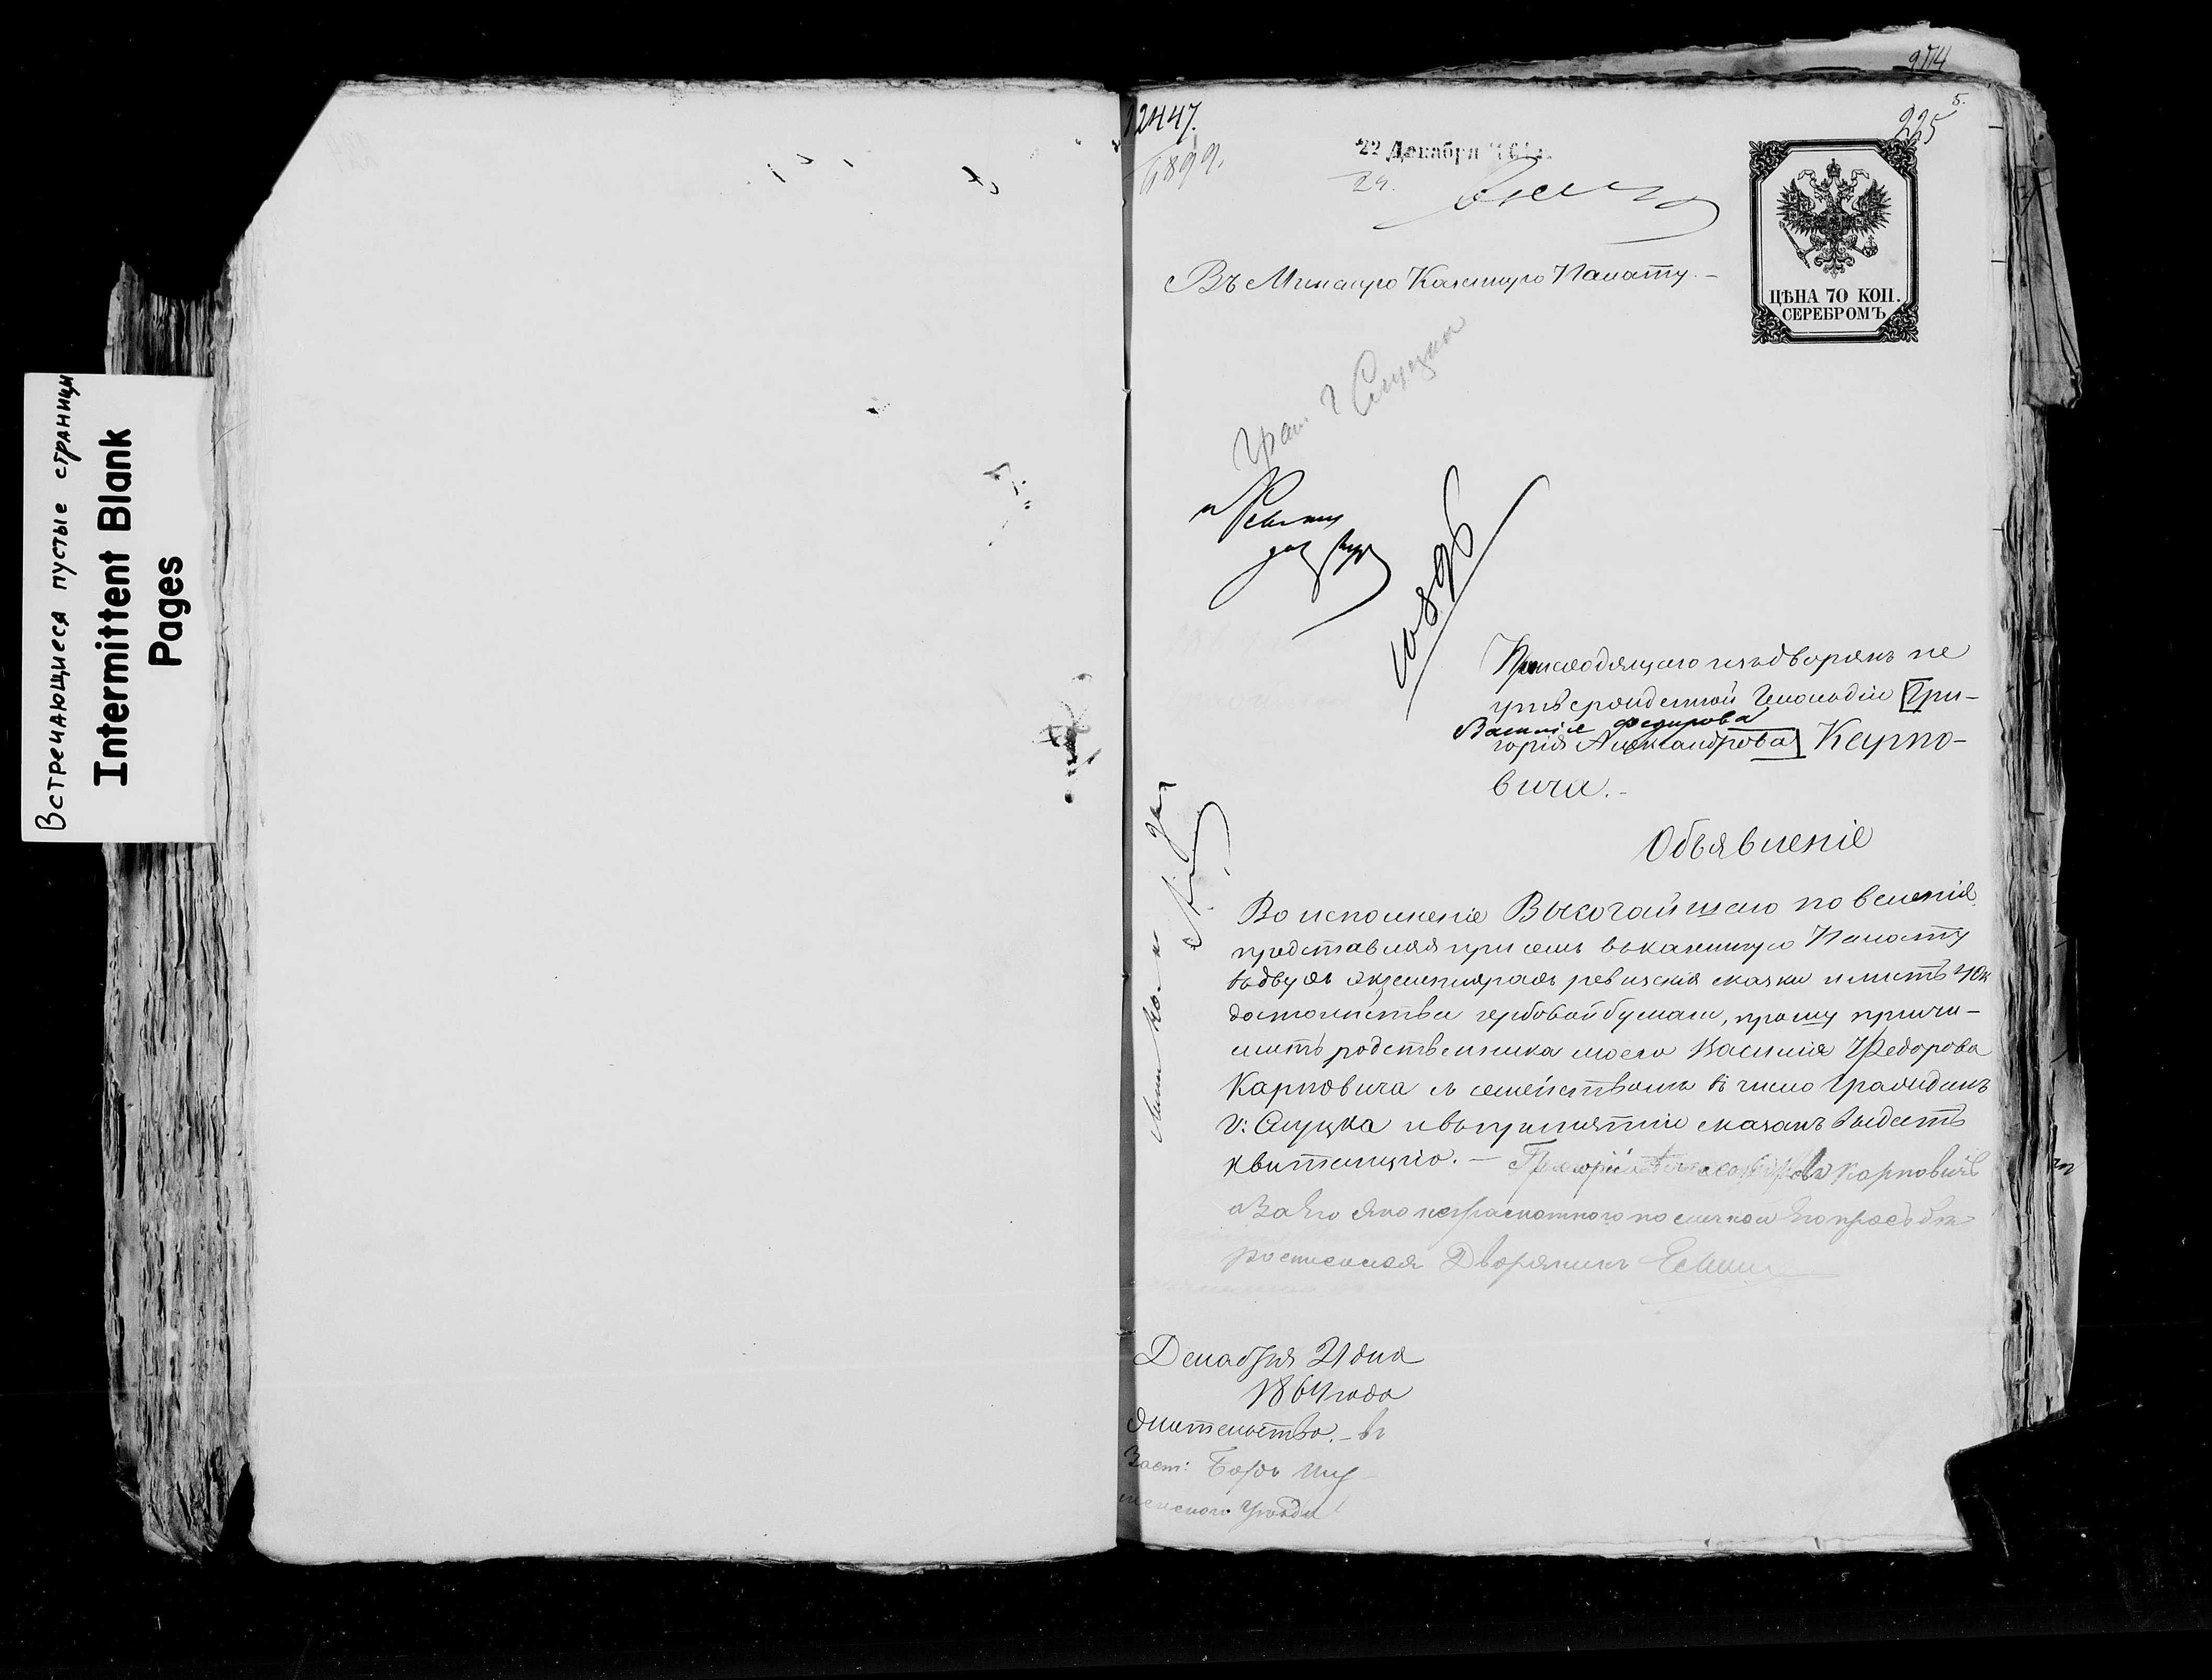 Встречающиеся пустые страницы
Intermittent Blank
Pages
12447.
22 Декабря
24.
225
ЦѢНА 70 КОП.
СЕРЕБРОМЪ
Въ Минскую Казенную Палату.-
Граж. г Слуцка
10896
Происходящаго изъ дворянъ не
утвержденной Геольдіи Гри-
Василіе Федорова
горія Александрова Карпо-
вича.-
Объявленіе
Во исполненіе Высочайшаго повеленія
представляя при семъ въ казенную Палату
въ двухъ экземплярахъ ревизскія сказки и листъ 70 к
достоинства гербовой бумаги, прошу причи-
слить родственника моего Василія Федорова
Карповича съ семействомъ въ число гражданъ
г: Слуцка и въ принятіи сказокъ выдать
квитанцію.- Григорій Александровъ Карповичъ
а За Его яко неграмотного по личной Его прозьбѣ
росписался Дворянинъ
Декабря 21 дня
1864 года
Жительство.- въ
Заст: Боръ
Уѣзда